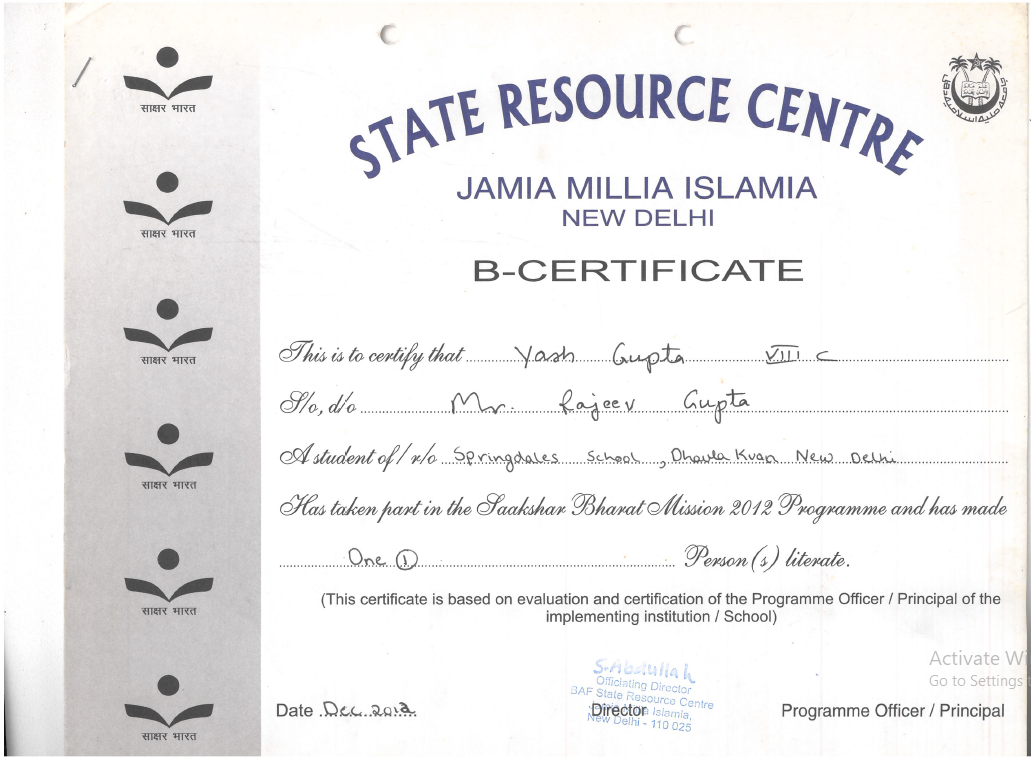 साक्षर भारत
साक्षर भारत
साक्षर भारत
साक्षर भारत
साक्षर भारत
साक्षर भारत
STATE RESOURCE CENTRE
JAMIA MILLIA ISLAMIA
NEW DELHI
B-CERTIFICATE
This is to certify that Yash Gupta VIII C
S/o, d/o Mr. Rajeev Gupta
A student of / r/o Springdales School, Dhaula Kuan New Delhi
Has taken part in the Saakshar Bharat Mission 2012 Programme and has made
One ① Person(s) literate.
(This certificate is based on evaluation and certification of the Programme Officer / Principal of the
implementing institution / School)
S. Abdullah
Officiating Director
BAF State Resource Centre
Islamia,
New Delhi - 110 025
Date Dec.
Director
Programme Officer / Principal
Activate Wi
Go to Settings